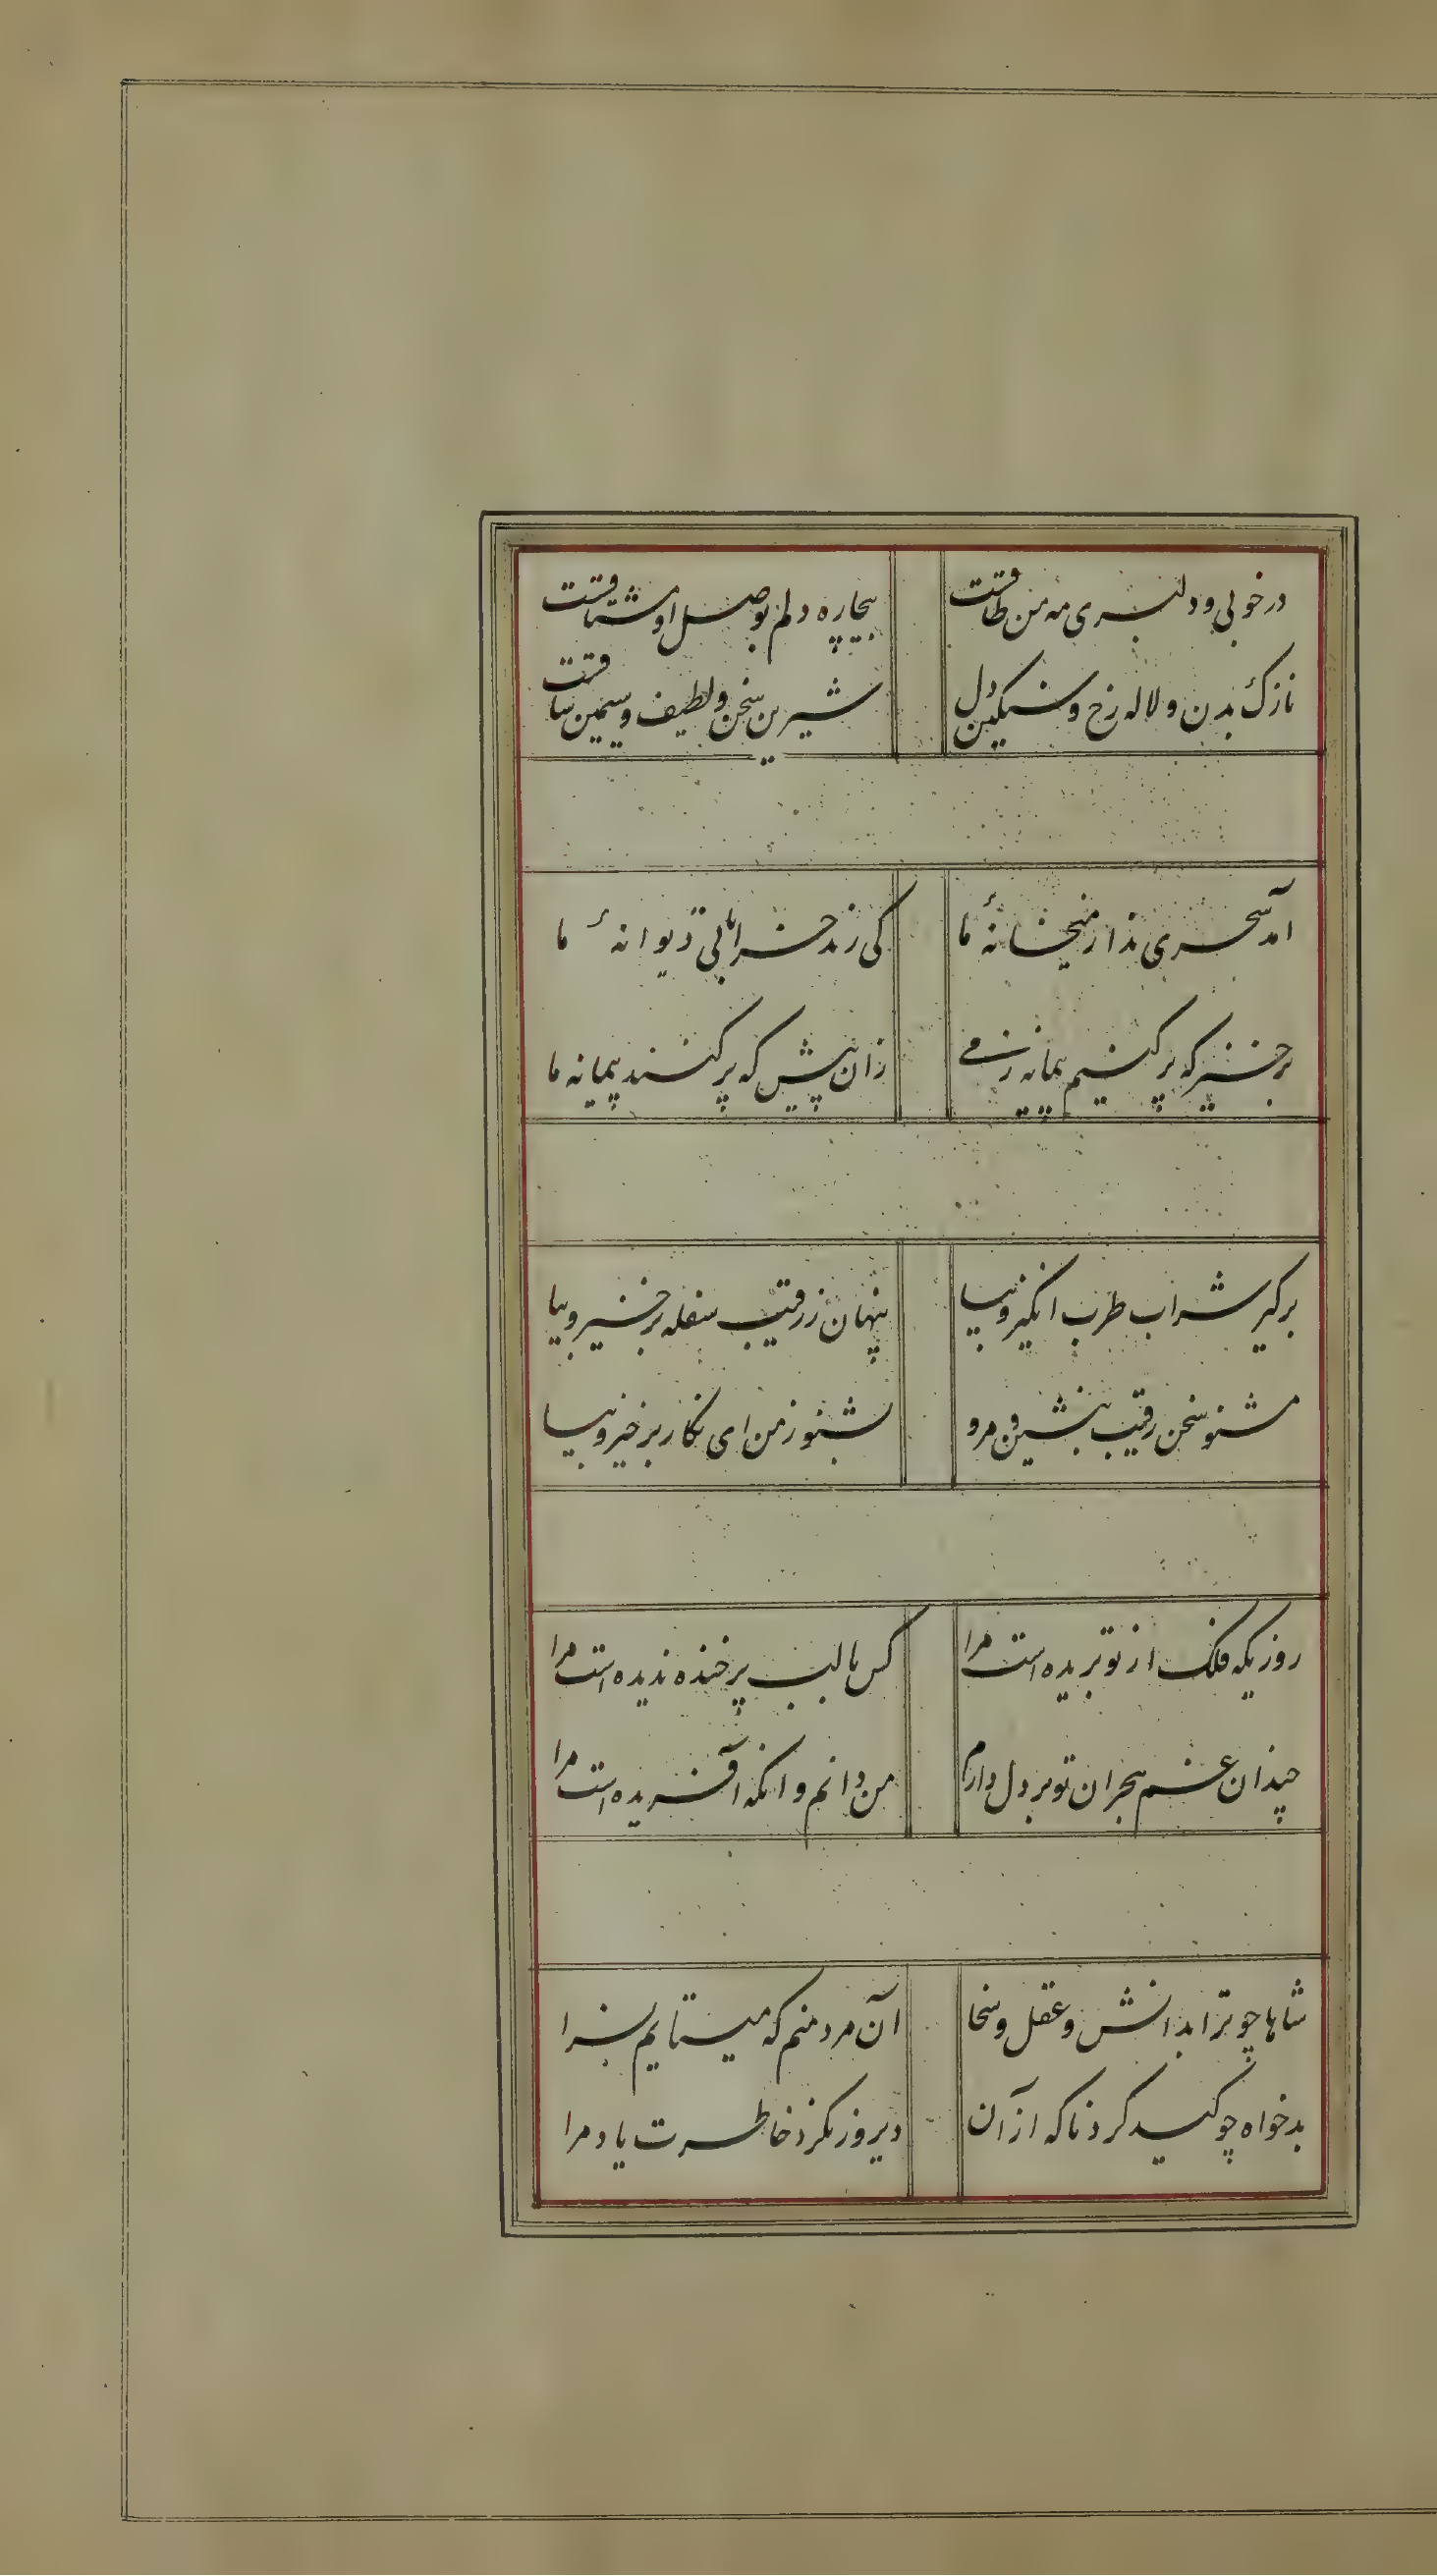 در خوبی و دلبری مه من طاقست بیچاره دلم بوصل او مشتاقست
نازک بدن و لاله رخ و سنگین دل شیرین سخن و لطیف و سیمین ساقست
آمد سحری ندا ز میخانهٔ ما کی رند خراباتی دیوانهٔ ما
برخیز که پر کنیم پیمانه ز می زان پیش که پر کنند پیمانه ما
برگیر شراب طرب انگیز و بیا پنهان ز رقیب سفله برخیز و بیا
مشنو سخن رقیب بنشین و مرو بشنو ز من ای نگار برخیز و بیا
روزیکه فلک از تو بریده است مرا کس با لب پر خنده ندیده است مرا
چندان غم هجران تو بر دل دارم من دانم و آنکه آفریده است مرا
شاها چو ترا بدانش و عقل و سخا آن مرد منم که میستایم بسزا
بدخواه چو کید کرد تا که از آن دیروز نکرد خاطرت یاد مرا